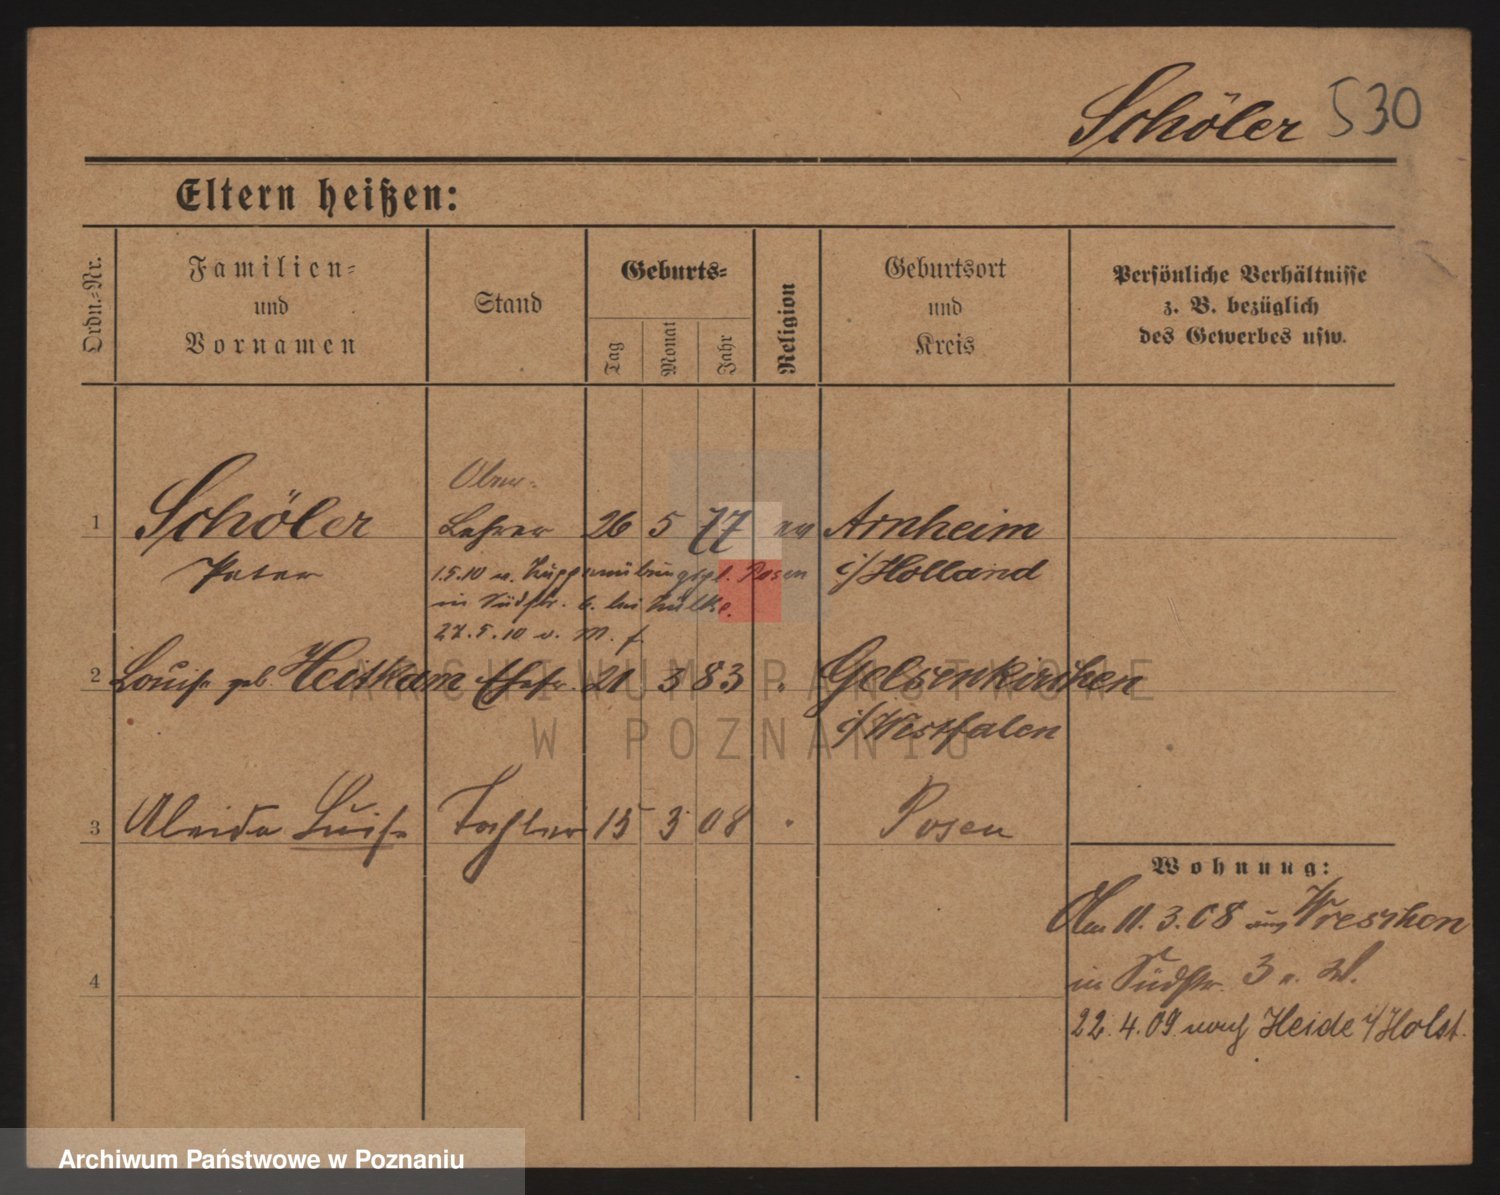 Schöler 530
Eltern heißen:
Ordn.-Nr.
Familien-
und
Vornamen
Stand
Geburts-
Tag
Monat
Jahr
Religion
Geburtsort
und
Kreis
Persönliche Verhältnisse
z. B. bezüglich
des Gewerbes usw.
Ober-
1 Schöler Lehrer 26 5 77 ev Arnheim
Peter
i/Holland
1.5.10 v. Truppenübungspl. Posen
in Südstr. 6. bei
27.5.10 v. M. f.
2 Louise geb. Heitkam Ehefr. 21 3 83 " Gelsenkirchen
i/Westfalen
3 Aleida Luise Tochter 15 3 08 " Posen
Wohnung:
Am 11.3.08 aus Wreschen
in Südstr. 3
4
22.4.09 nach Heide i/Holst.
ARCHIWUM PAŃSTWOWE
W POZNANIU
Archiwum Państwowe w Poznaniu